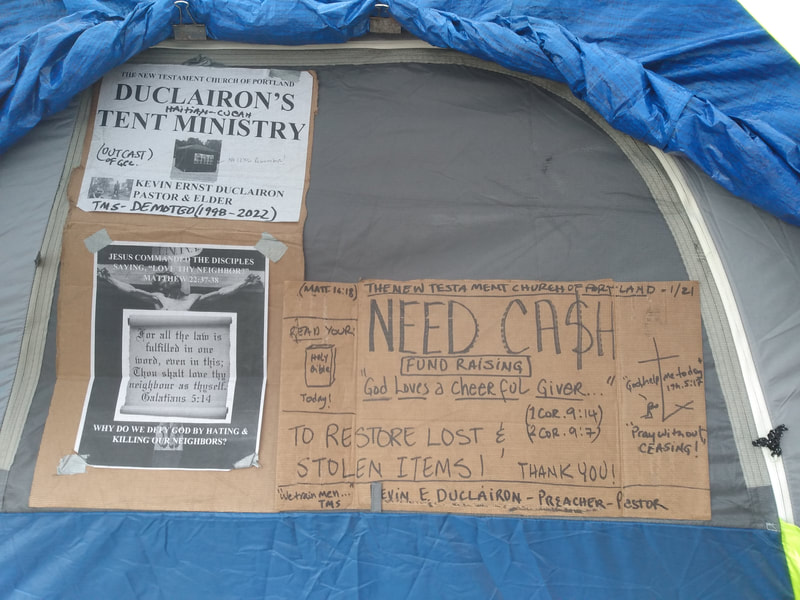 THE NEW TESTAMENT CHURCH OF PORTLAND
DUCLAIRON'S
HAITIAN-CUBAN
TENT MINISTRY
(OUTCAST)
OF GEC.
KEVIN ERNST DUCLAIRON
PASTOR & ELDER
TMS- DEMOTGO (1998-2022)
JESUS COMMANDED THE DISCIPLES
SAYING, "LOVE THY NEIGHBOR!"
MATTHEW 22:37-38
For all the law is
fulfilled in one
word, even in this;
Thou shalt love thy
neighbour as thyself.
Galatians 5:14
WHY DO WE DEFY GOD BY HATING &
KILLING OUR NEIGHBORS?
(MATT. 16:18)
READ YOUR:
HOLY
BIBLE
Today!
"We train men..."
TMS
THE NEW TESTAMENT CHURCH OF PORTLAND - 1/21
NEED CA$H
FUND RAISING
"GOD LOVES A CHEERFUL GIVER..."
(1 COR. 9:14)
(2 COR. 9:7)
TO RESTORE LOST &
STOLEN ITEMS! THANK YOU!
KEVIN E. DUCLAIRON - PREACHER - PASTOR
"God help me today"
1Th. 5:17
"Pray without
CEASING!"